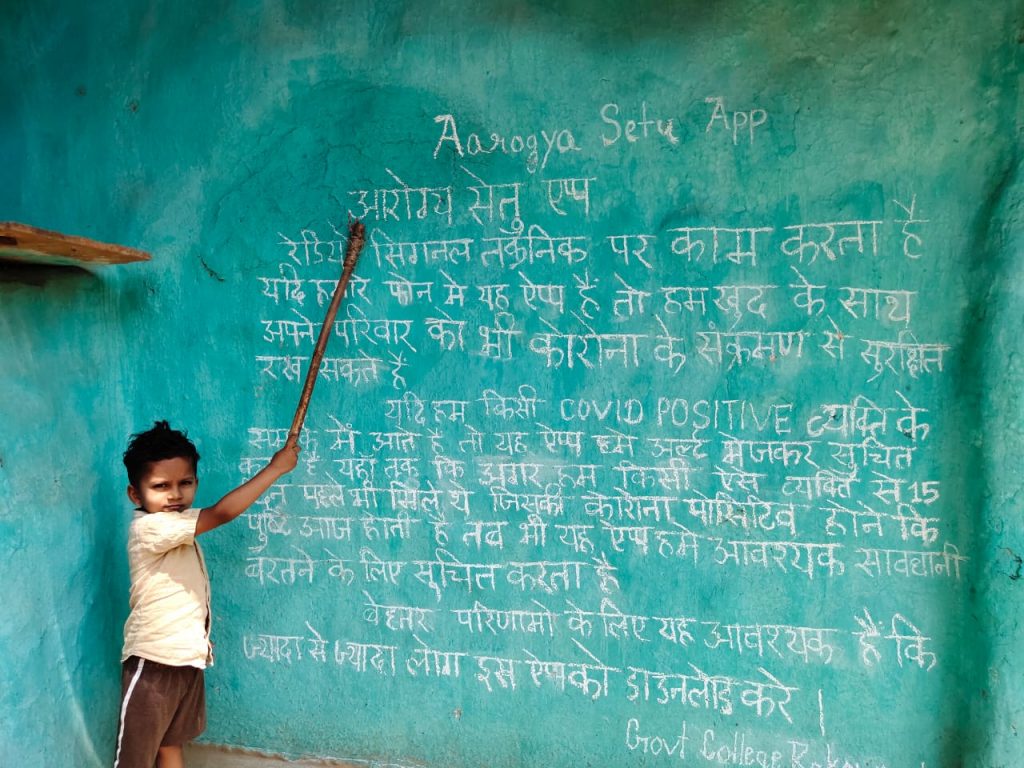 Aarogya Setu App
आरोग्य सेतु एप्प
रेडियो सिगनल तकनिक पर काम करता है
यदि हमारे फोन मे यह ऐप्प है तो हम खुद के साथ
अपने परिवार को भी कोरोना के संक्रमण से सुरक्षित
रख सकते है
यदि हम किसी COVID POSITIVE व्यक्ति के
सम्पर्क में आते है तो यह ऐप्प हमे अलर्ट भेजकर सुचित
है यहाँ तक कि अगर हम किसी ऐसे व्यक्ति से 15
दिन पहले भी मिले थे जिसकी कोरोना पोसिटिव होने कि
पुष्टि आज होती है तब भी यह ऐप्प हमे आवश्यक सावधानी
बरतने के लिए सुचित करता है
बेहतर परिणामो के लिए यह आवश्यक है कि
ज्यादा से ज्यादा लोग इस ऐप्प को डाउनलोड करे ।
Govt College